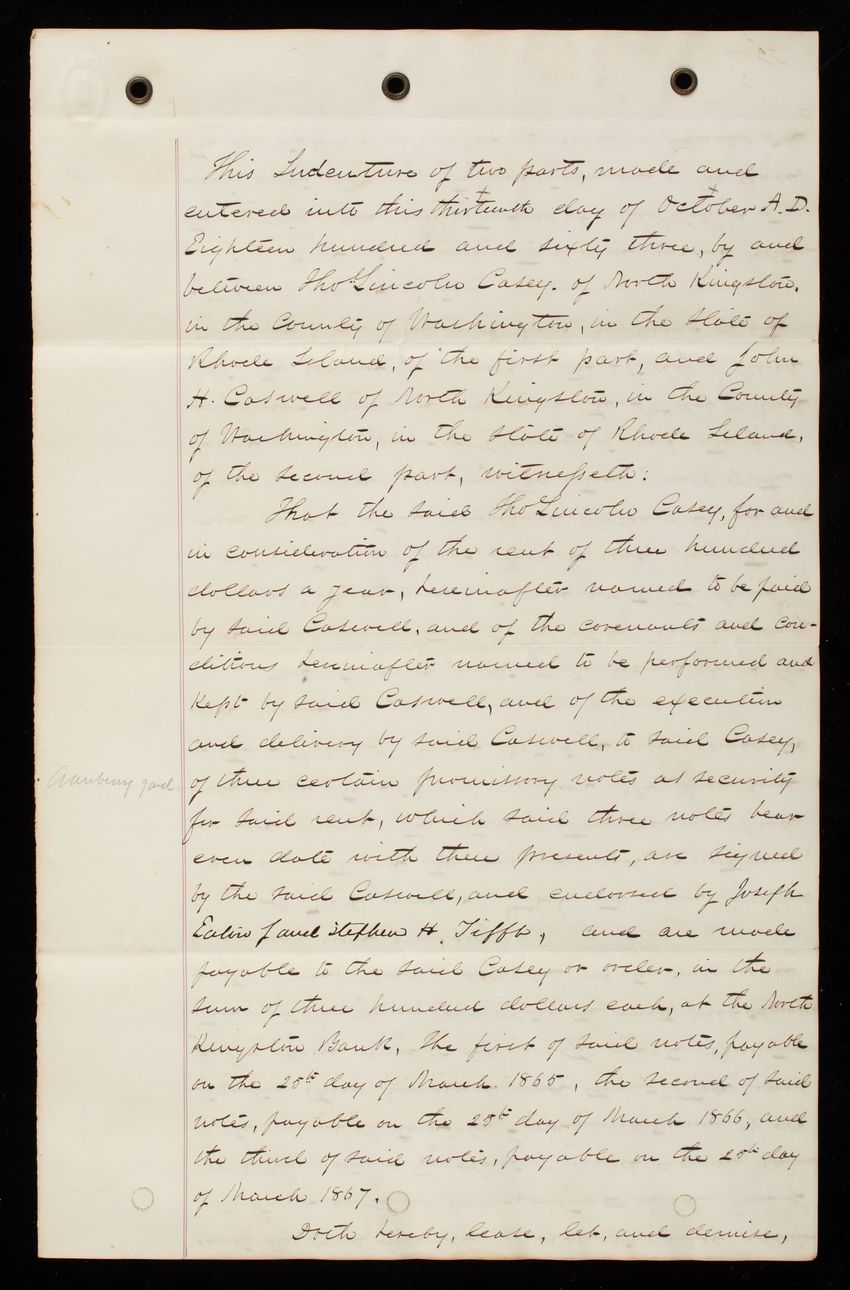 This Indenture of two parts, made and
entered into this thirteenth day of October A.D.
Eighteen hundred and sixty three, by and
between Thos Lincoln Casey. of North Kingston,
in the County of Washington, in the State of
Rhode Island, of the first part, and John
H. Caswell of North Kingston, in the County
of Washington, in the State of Rhode Island,
of the second part, witnesseth:
That the said Tho Lincoln Casey, for and
in consideration of the rent of three hundred
dollars a year, hereinafter named to be paid
by said Caswell, and of the covenants and con-
ditions hereinafter named to be performed and
kept by said Caswell, and of the execution
and delivery by said Caswell, to said Casey,
of three certain promissory notes as security
for said rent, which said three notes bear
even date with these presents, are signed
by the said Caswell, and endorsed by Joseph
Eaton J and Stephen H. Tifft, and are made
payable to the said Casey or order, in the
sum of three hundred dollars each, at the North
Kingston Bank, The first of said notes, payable
on the 25th day of March. 1865, the second of said
notes, payable on the 25th day of March 1866, and
the third of said notes, payable on the 25th day
of March 1867.
Doth hereby, lease, let, and demise,